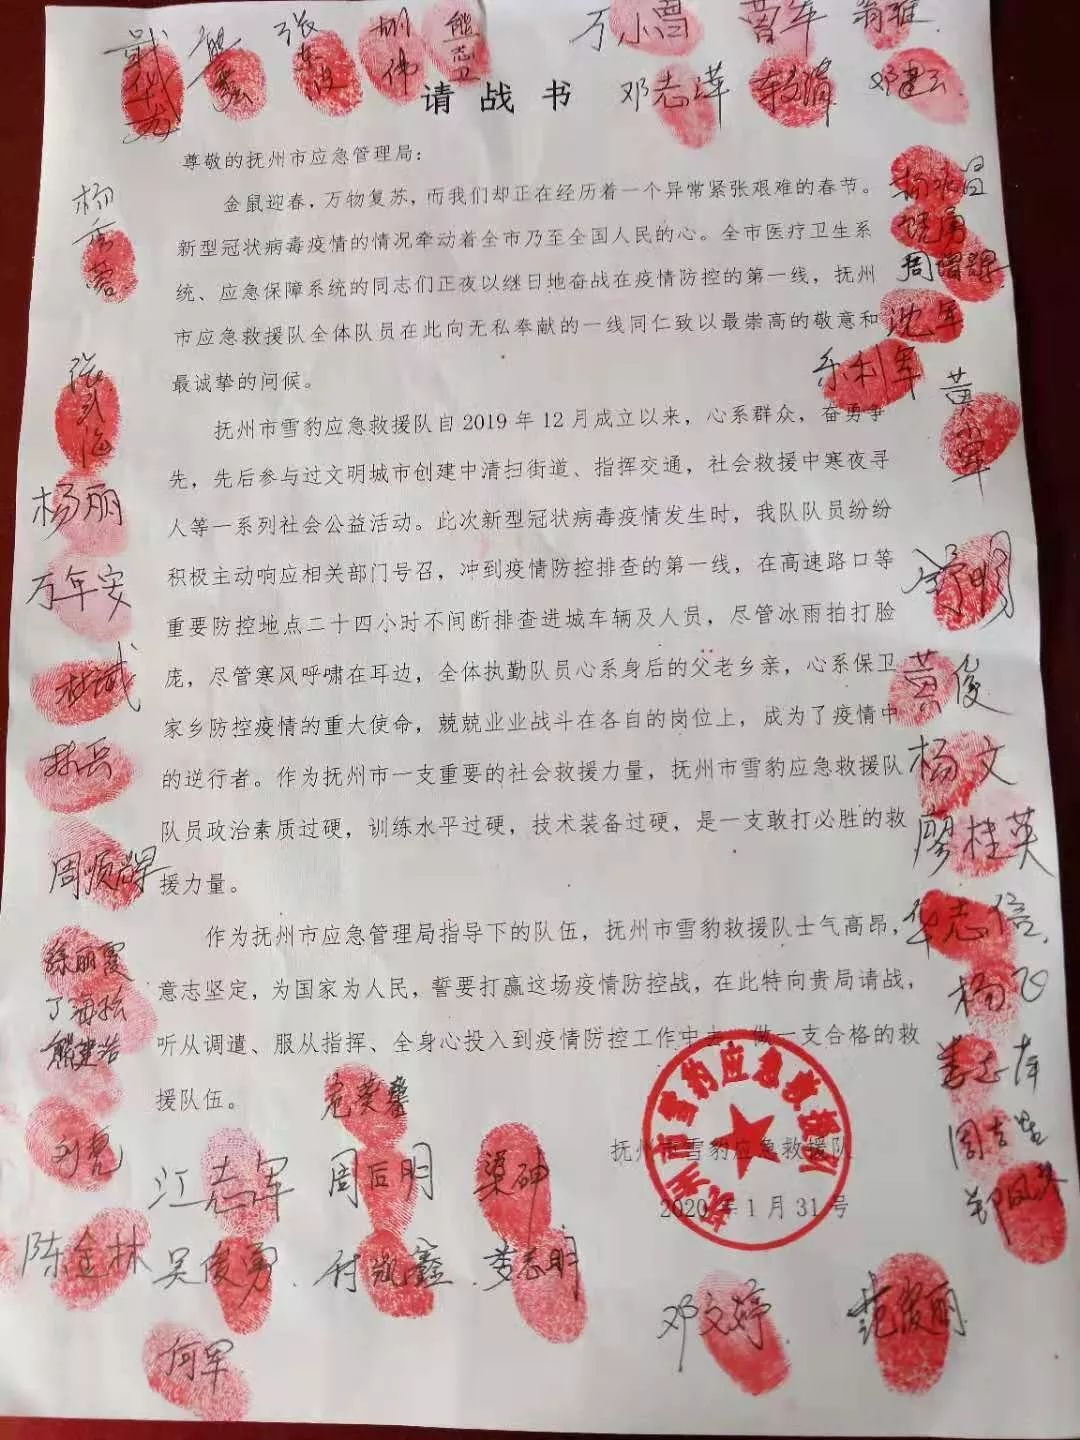 万小曾
请战书
邓志萍
邓建云
尊敬的抚州市应急管理局：
金鼠迎春，万物复苏，而我们却正在经历着一个异常紧张艰难的春节。
新型冠状病毒疫情的情况牵动着全市乃至全国人民的心。全市医疗卫生系
统、应急保障系统的同志们正夜以继日地奋战在疫情防控的第一线，抚州
市应急救援队全体队员在此向无私奉献的一线同仁致以最崇高的敬意和
最诚挚的问候。
抚州市雪豹应急救援队自2019年12月成立以来，心系群众，奋勇争
先，先后参与过文明城市创建中清扫街道、指挥交通，社会救援中寒夜寻
人等一系列社会公益活动。此次新型冠状病毒疫情发生时，我队队员纷纷
积极主动响应相关部门号召，冲到疫情防控排查的第一线，在高速路口等
重要防控地点二十四小时不间断排查进城车辆及人员，尽管冰雨拍打脸
庞，尽管寒风呼啸在耳边，全体执勤队员心系身后的父老乡亲，心系保卫
家乡防控疫情的重大使命，兢兢业业战斗在各自的岗位上，成为了疫情中
的逆行者。作为抚州市一支重要的社会救援力量，抚州市雪豹应急救援队
队员政治素质过硬，训练水平过硬，技术装备过硬，是一支敢打必胜的救
援力量。
作为抚州市应急管理局指导下的队伍，抚州市雪豹救援队士气高昂，
意志坚定，为国家为人民，誓要打赢这场疫情防控战，在此特向贵局请战，
听从调遣、服从指挥、全身心投入到疫情防控工作中去，做一支合格的救
援队伍。
抚州市雪豹应急救援队
2020年1月31号
抚州市雪豹应急救援队
杨丽
万年安
林兵
周顺辉
徐丽霞
丁海松
熊建浩
刘亮
沈军
乐利军
黄小军
黄俊
杨文
廖桂英
华志信
杨飞
江志军
周后明
梁砷
陈金林
吴俊勇
付凯鑫
姜志明
邓文婷
范俊丽
何军